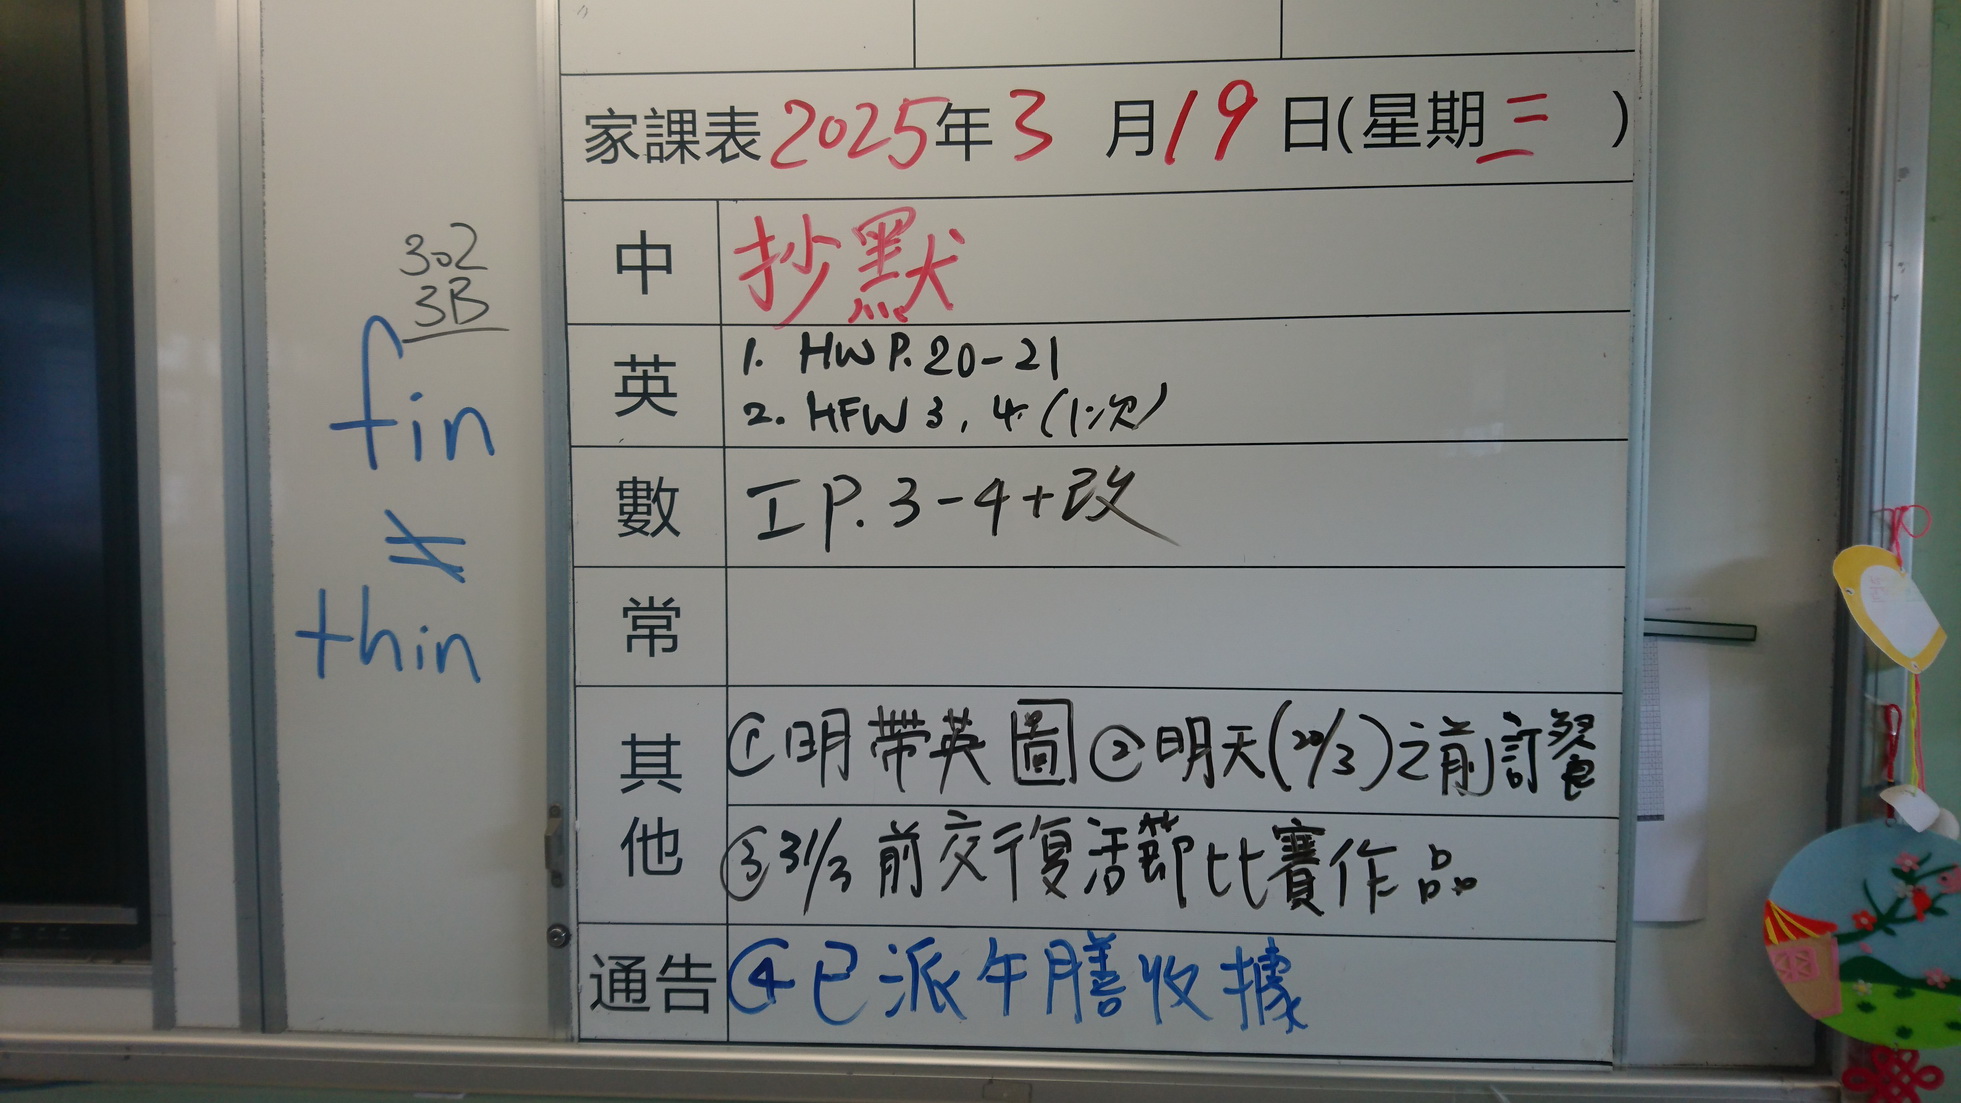 家課表2025年3月19日(星期三)
302
3B
fin
≠
thin
中 抄默
英 1. HW P.20-21
2. HFW 3, 4 (1次)
數 I P.3-4+改
常
其他 ①明帶英圖 ②明天(20/3)之前訂餐
③31/3前交復活節比賽作品
通告 ④已派午膳收據